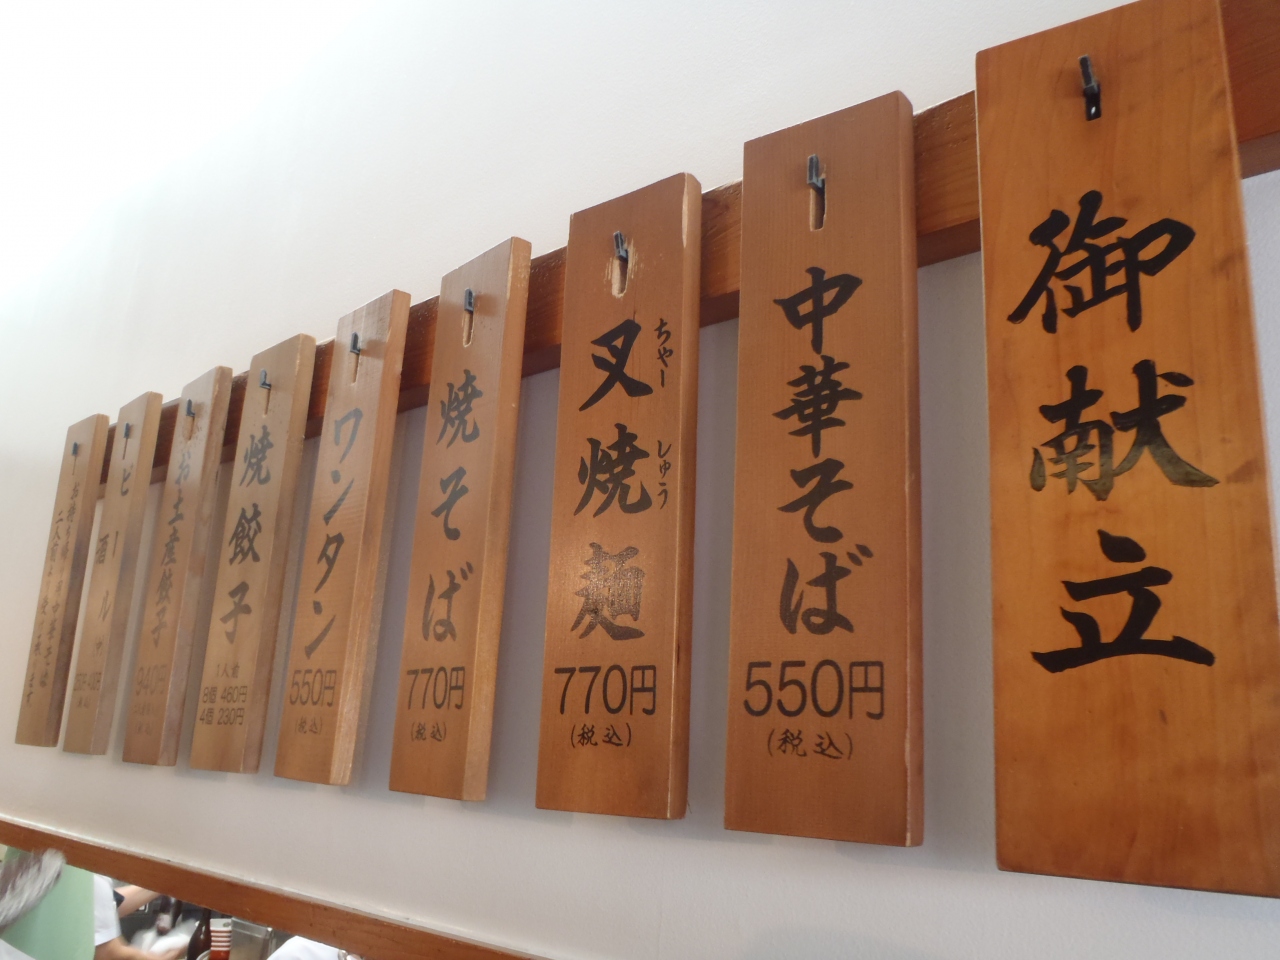 御献立
中華そば
550円
(税込)
叉焼麺
ちゃーしゅう
770円
(税込)
焼そば
770円
(税込)
ワンタン
550円
(税込)
焼餃子
1人前
8個 460円
4個 230円
お土産餃子
340円
ビール
酒
お持ち帰り用中華そば